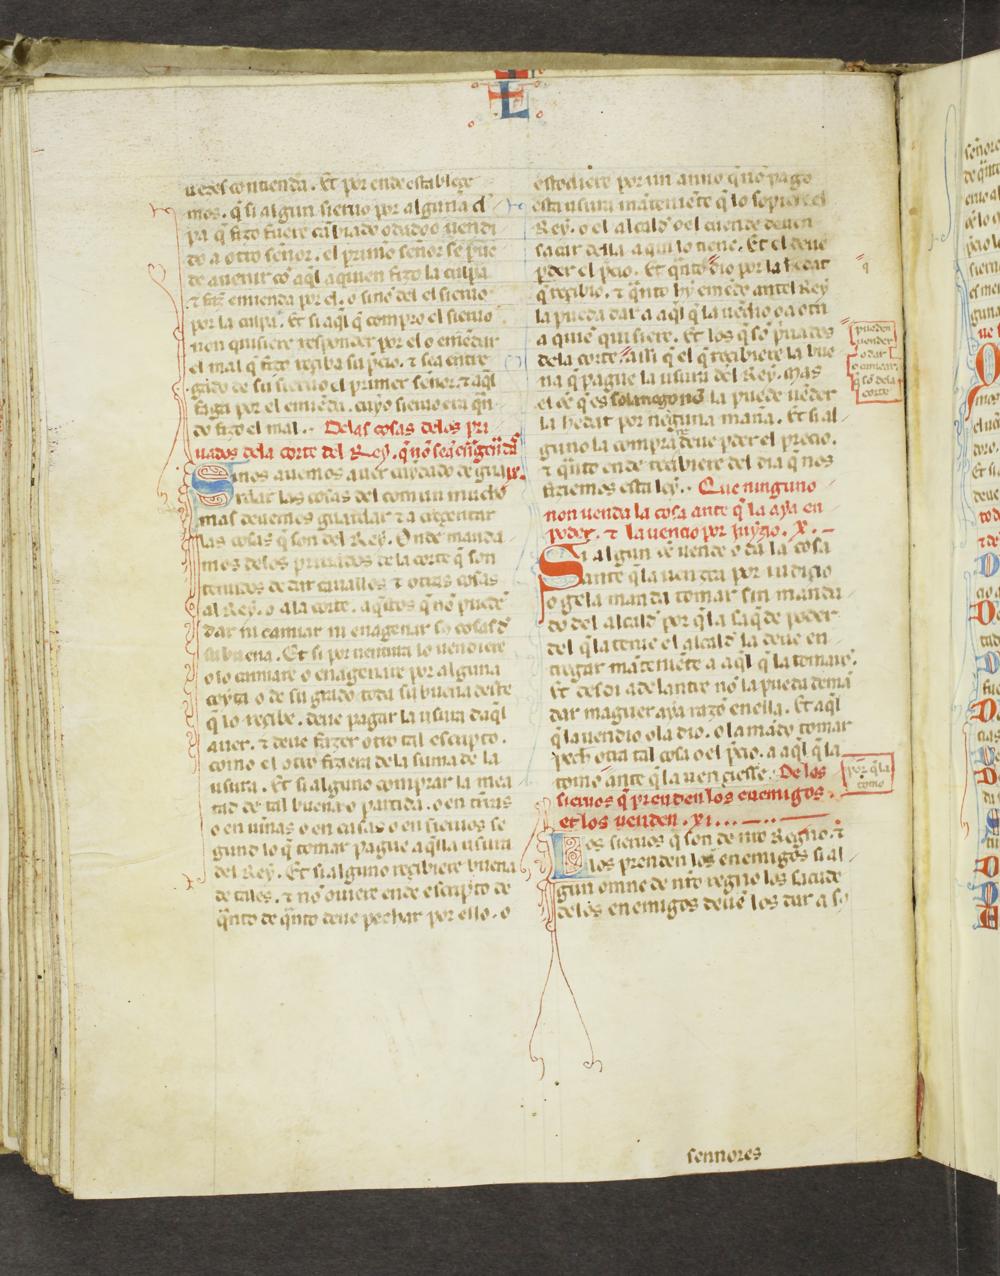 L
uezes contienda. Et por ende establege
mos. q̃ si algun sieruo por alguna cl̃
pa q̃ fizo fuere cãbiado o dado o uendi
do a otro señor. el primo señor se pue
de auenir cõ aq̃l a quien fizo la culpa
⁊ faz emienda por el. o sino del el sieruo
por la culpa. Et si aq̃l q̃ compro el sieruo
non quisiere responder por el o emẽdar
el mal q̃ fizo reciba su p̃cio. ⁊ sea entre
gado de su sieruo el primer señor. ⁊ aq̃l
faga por el emiẽda. cuyo sieruo era q̃n
do fizo el mal. Delas cosas delos pri
uados dela corte del Rey. q̃ nõ seã
Si nos auemos auer cuydado de gua ix.
rdar las cosas del comun mucho
mas deuemos guardar ⁊ a creçentar
las cosas q̃ son del Rey. Onde manda
mos delos priuados dela corte q̃ son
tenudos de dar cauallos ⁊ otras cosas
al Rey. o ala corte. aq̃stos q̃ nõ puedẽ
dar ni camiar ni enagenar sus cosas d̃
su buena. Et si por uentura lo uendiere
o lo camiare o enagenare por alguna
coyta o de su grado toda su buena deste
q̃ lo recibe. deue pagar la usura daq̃l
auer. ⁊ deue fazer otro tal escripto.
como el otro fiziera dela suma de la
usura. Et si alguno comprar la mea
tad de tal buena o partida. o en tr̃ras
o en uinas o en casas o en sieruos se
gund lo q̃ tomar pague aq̃lla usura
del Rey. Et si alguno recibiere buena
de tales. ⁊ nõ ouiere ende escripto de
q̃nto de q̃nto deue pechar por ello. o
estodiere por un anno q̃ nõ pago
esta usura mãteniente q̃ lo sopiere el
Rey. o el alcald̃ o el cuende deuen
sacar della a qui lo tiene. Et el deue
p̃der el p̃cio. Et q̃nto dio por la hedat
q̃ recibio. ⁊ q̃nto hy emẽdo antel Rey
la pueda dar a aq̃l q̃ la uẽdio o a otri
a quiẽ quisiere. Et los q̃ sõ p̃uados
dela corte assi q̃ el q̃ recibiere la bue
na q̃ pague la usura del Rey. Mas
el õe q̃ es solariego nõ la puede uẽder
la hedat por nẽguna manã. Et si al
guno la comprã deue p̃der el precio.
⁊ q̃nto ende recibiere del dia q̃ nos
fiziemos esta ley. Que ninguno
non uenda la cosa ante q̃ la aya en
poder. ⁊ la uencio por juyzio. x.
Si algun õe uende o da la cosa
ante q̃ la uenzca por iudicio
o gela manda tomar sin manda
do del alcald̃ por q̃ la saq̃ de poder
del q̃ la tenie el alcald̃ la deue en
tregar mãteniẽte a aq̃l q̃ la tomarõ.
Et desdi adelantre nõ la pueda demã
dar maguer aya razõ en ella. Et aq̃l
q̃ la uendio o la dio. o la mãdo tomar
pech otra tal cosa o el p̃cio. a aq̃l q̃ la
tomo ante q̃ la uenciesse. De los
sieruos q̃ prenden los enemigos.
et los uenden. xi.
Los sieruos q̃ son de nr̃o Regno. ⁊
los prenden los enemigos si al
gun omne de nr̃o regno los sacade
delos enemigos deuẽ los dar a so
q̃
pueden
uender
o dar
o camiar
q̃ sõ dela
corte
por q̃ la
tomo
sennores